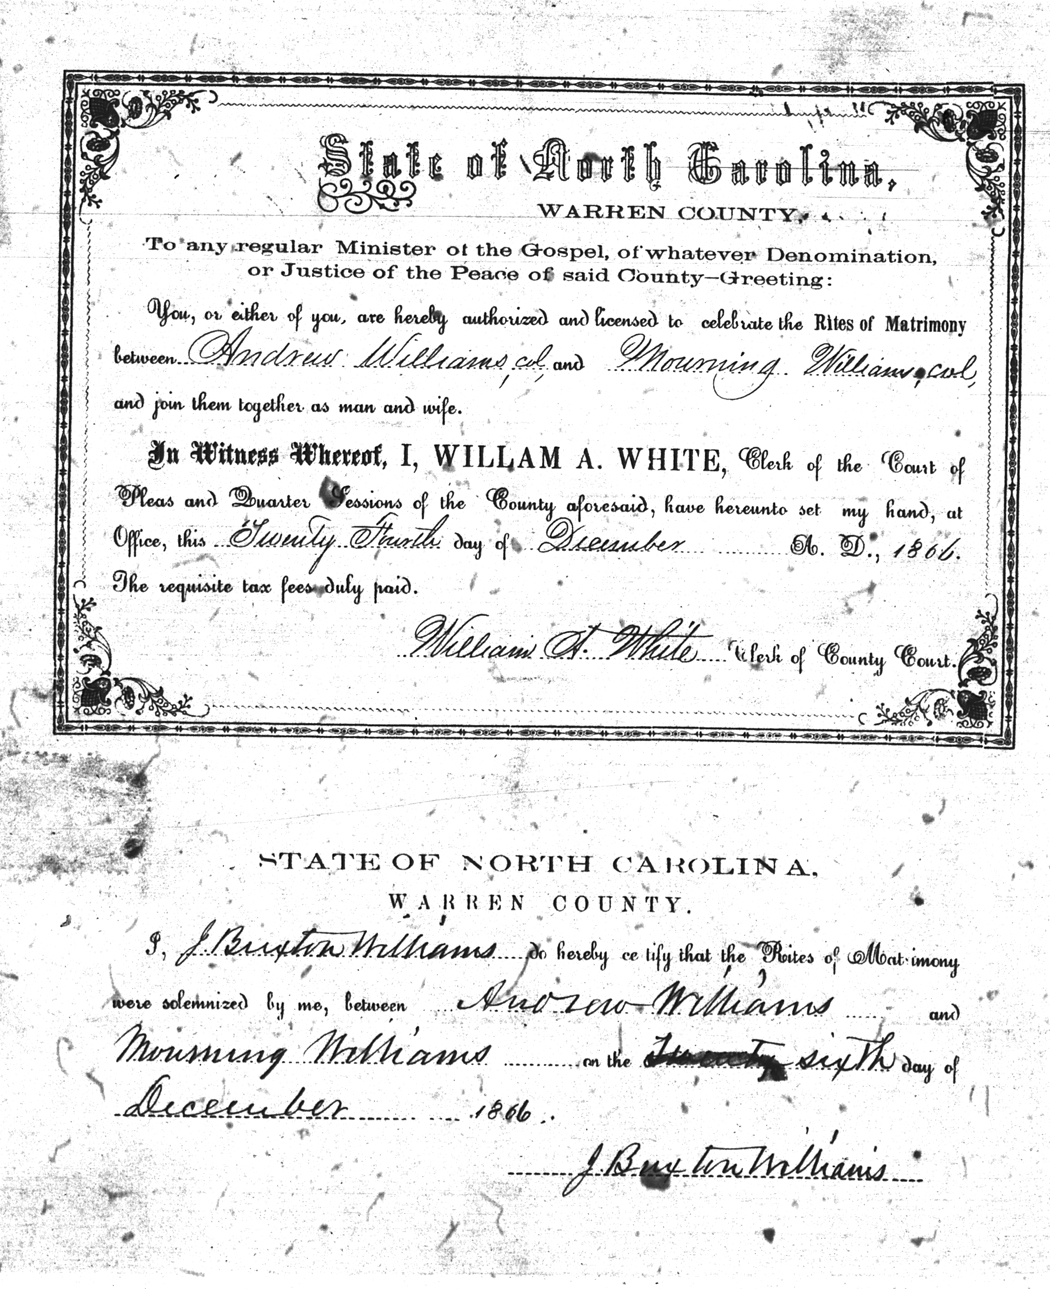 State of North Carolina,
WARREN COUNTY.
To any regular Minister of the Gospel, of whatever Denomination,
or Justice of the Peace of said County—Greeting:
You, or either of you, are hereby authorized and licensed to celebrate the Rites of Matrimony
between Andrew Williams, col, and Mourning Williams, col,
and join them together as man and wife.
In Witness Whereof, I, WILLAM A. WHITE, Clerk of the Court of
Pleas and Quarter Sessions of the County aforesaid, have hereunto set my hand, at
Office, this Twenty Fourth day of December A. D., 1866.
The requisite tax fees duly paid.
William A. White Clerk of County Court.
STATE OF NORTH CAROLINA,
WARREN COUNTY.
I, J Buxton Williams do hereby ce tify that the Rites of Mat imony
were solemnized by me, between Andrew Williams and
Mourning Williams on the Twenty sixth day of
December 1866.
J Buxton Williams